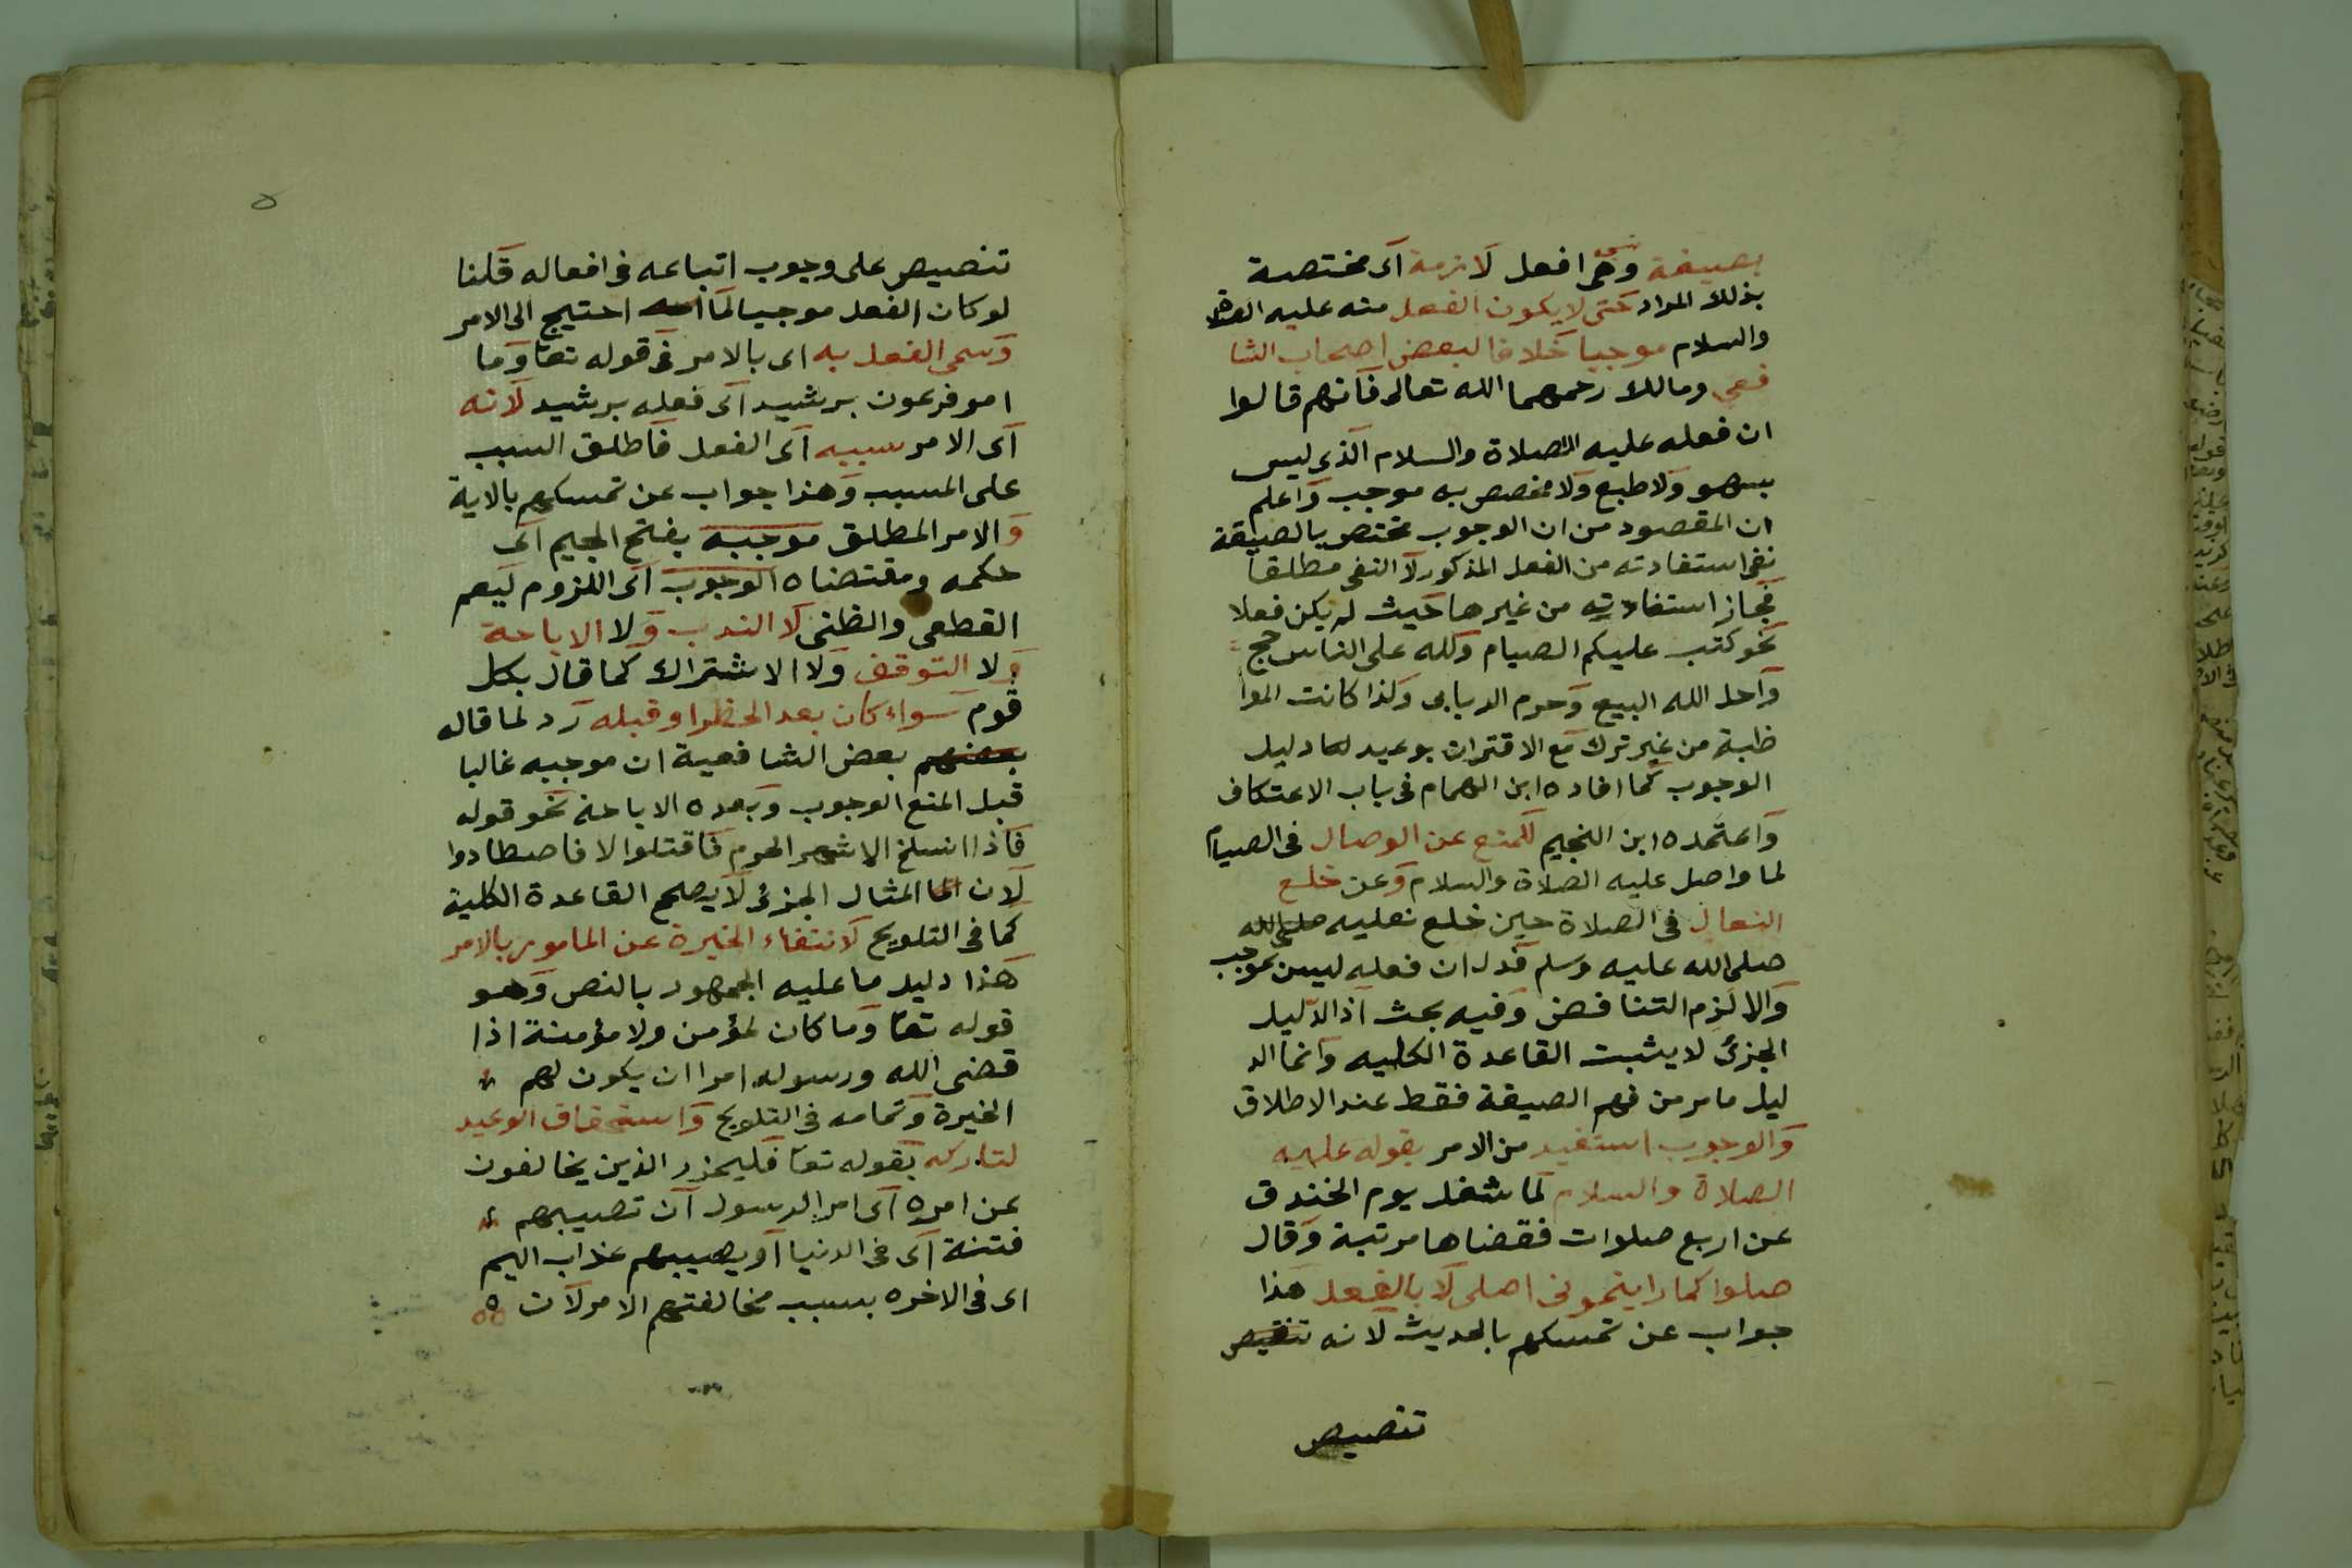 بصيغة وهي افعل لازمة اى مختصة
بذلك المراد حتى لا يكون الفعل منه عليه الصلاة
والسلام موجبا خلافا لبعض اصحاب الشا
فعي ومالك رحمهما الله تعالى فانهم قالوا
ان فعله عليه الصلاة والسلام الذى ليس
بسهو ولا طبع ولا مخصص به موجب واعلم
ان المقصود من ان الوجوب مختص بالصيغة
نفى استفادته من الفعل المذكور لا النفى مطلقا
فجاز استفادته من غيرها حيث لم يكن فعلا
نحو كتب عليكم الصيام ولله على الناس حج
واحل الله البيع وحرم الربا وكذا كانت الموا
ظبة من غير ترك مع الاقتران بوعيد دليل
الوجوب كما افاده ابن الهمام فى باب الاعتكاف
واعتمده ابن النجيم للمنع عن الوصال فى الصيام
لما واصل عليه الصلاة والسلام وعن خلع
النعال فى الصلاة حين خلع نعليه صلى الله
صلى الله عليه وسلم فدل ان فعله ليس بموجب
والا لزم التناقض وفيه بحث اذ الدليل
الجزئ لا يثبت القاعدة الكليه وانما الد
ليل ما مر من فهم الصيغة فقط عند الاطلاق
والوجوب استفيد من الامر بقوله عليه
الصلاة والسلام لما شغل يوم الخندق
عن اربع صلوات فقضاها مرتبة وقال
صلوا كما رايتمونى اصلى لا بالفعل هذا
جواب عن تمسكهم بالحديث لانه تنصيص
تنصيص
٥
تنصيص على وجوب اتباعه فى افعاله قلنا
لو كان الفعل موجبا لما احتيج الى الامر
وسمى الفعل به اى بالامر فى قوله تعا وما
امر فرعون برشيد اى فعله برشيد لانه
اى الامر سببه اى الفعل فاطلق السبب
على المسبب وهذا جواب عن تمسكهم بالاية
والامر المطلق موجبه بفتح الجيم اى
حكمه ومقتضاه الوجوب اى اللزوم ليعم
القطعى والظنى لا الندب ولا الاباحة
ولا التوقف ولا الاشتراك كما قال بكل
قوم سواء كان بعد الحظر او قبله رد لما قاله
بعضهم بعض الشافعية ان موجبه غالبا
قبل المنع الوجوب وبعده الاباحة نحو قوله
فاذا انسلخ الاشهر الحرم فاقتلوا لا فاصطادوا
لان المثال الجزئ لا يصحح القاعدة الكلية
كما فى التلويح لانتفاء الخيرة عن المامور بالامر
هذا دليل ما عليه الجمهور بالنص وهو
قوله تعا وما كان لمؤمن ولا مؤمنة اذا
قضى الله ورسوله امرا ان يكون لهم
الخيرة وتمامه فى التلويح واستحقاق الوعيد
لتاركه بقوله تعا فليحذر الذين يخالفون
عن امره اى امر الرسول ان تصيبهم
فتنة اى فى الدنيا او يصيبهم عذاب اليم
اى فى الاخره بسبب مخالفتهم الامر لان